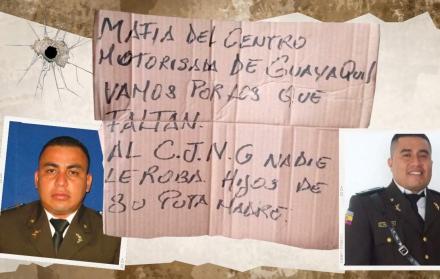 MAFIA DEL CENTRO
MOTORISADA DE GUAYAQUIL
VAMOS POR LOS QUE
FALTAN.
AL C.J.N.G NADIE
LE ROBA HIJOS DE
SU PUTA MADRE.